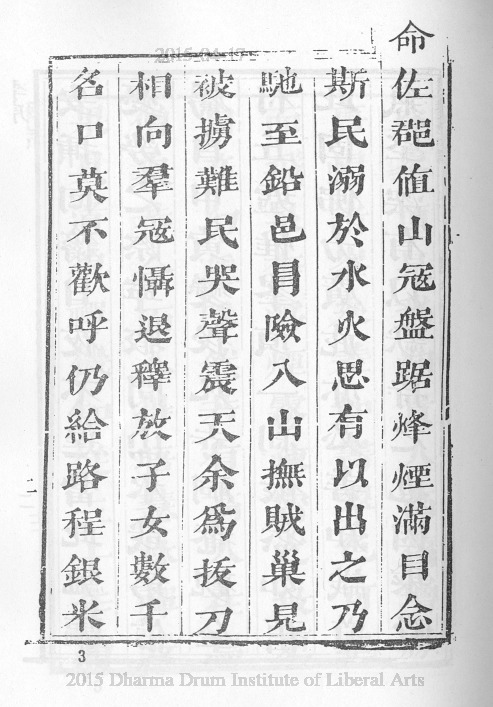 2015-04-17
命佐郡值山寇盤踞烽煙滿目念
斯民溺於水火思有以出之乃
馳至鉛邑冐險入山撫賊巢見
被擄難民哭聲震天余爲拔刀
相向羣寇懾退釋放子女數千
名口莫不歡呼仍給路程銀米
二
3
2015 Dharma Drum Institute of Liberal Arts